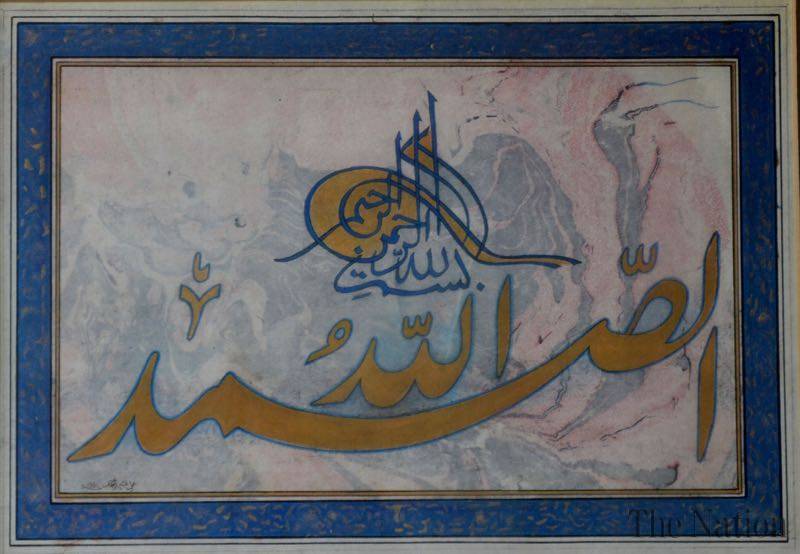 بسم الله الرحمن الرحيم
اللهُ الصّمد
The Nation